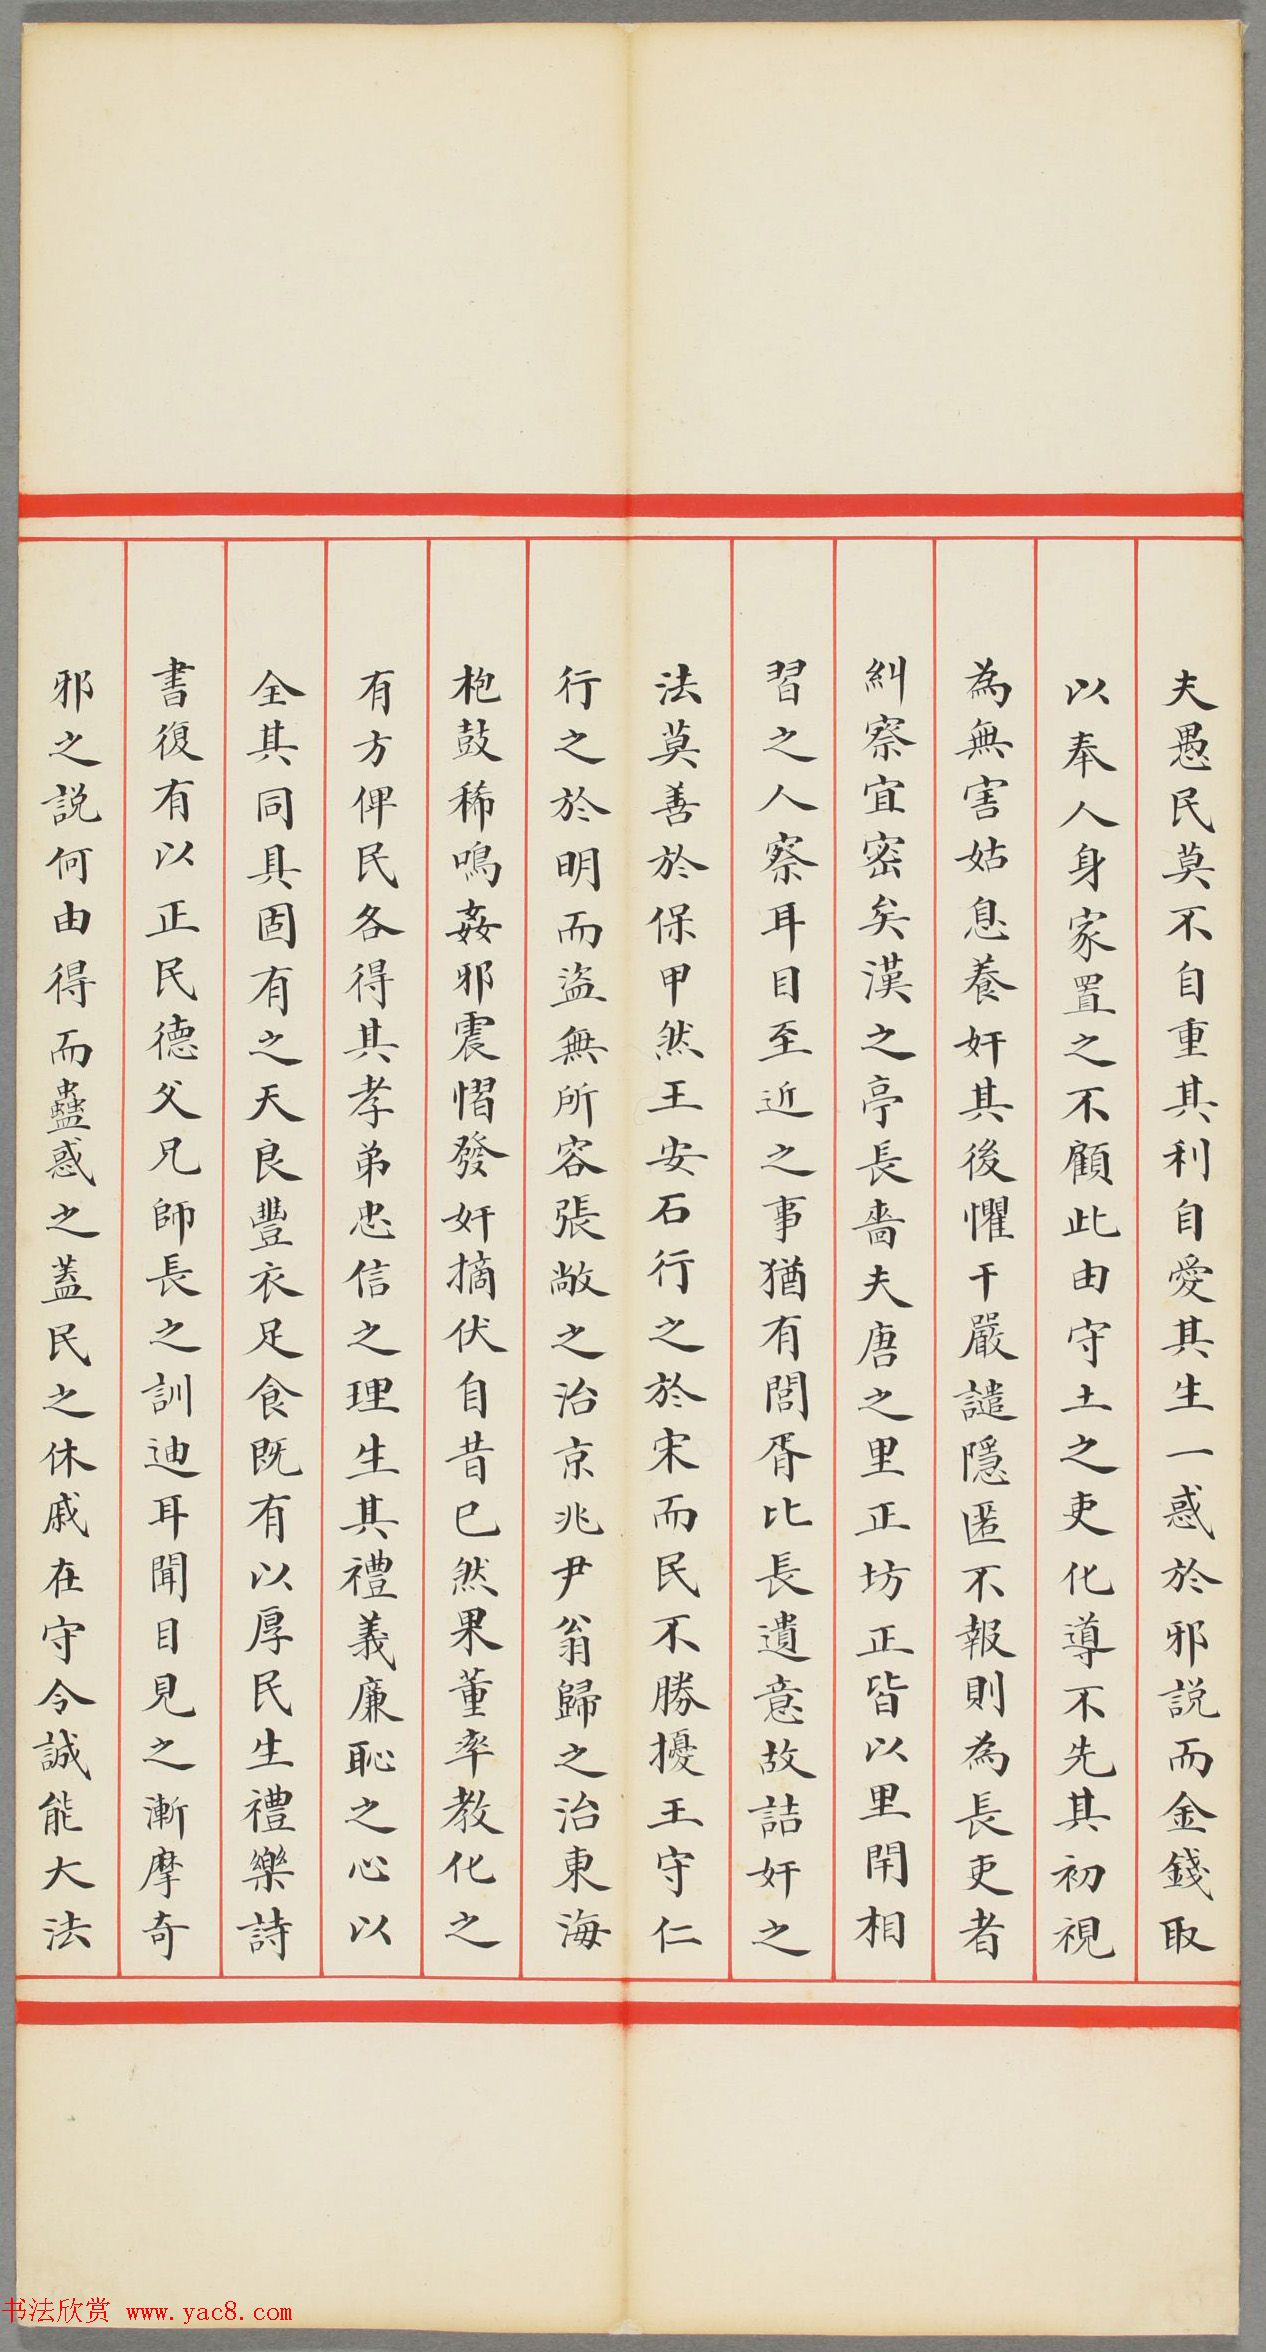 夫愚民莫不自重其利自愛其生一惑於邪説而金錢取
以奉人身家置之不顧此由守土之吏化導不先其初視
為無害姑息養奸其後懼干嚴譴隱匿不報則為長吏者
糾察宜密矣漢之亭長嗇夫唐之里正坊正皆以里閈相
習之人察耳目至近之事猶有閭胥比長遺意故詰奸之
法莫善於保甲然王安石行之於宋而民不勝擾王守仁
行之於明而盜無所容張敞之治京兆尹翁歸之治東海
枹鼓稀鳴姦邪震慴發奸摘伏自昔已然果董率教化之
有方俾民各得其孝弟忠信之理生其禮義廉恥之心以
全其同具固有之天良豐衣足食既有以厚民生禮樂詩
書復有以正民德父兄師長之訓迪耳聞目見之漸摩奇
邪之説何由得而蠱惑之蓋民之休戚在守令誠能大法
书法欣赏 www.yac8.com